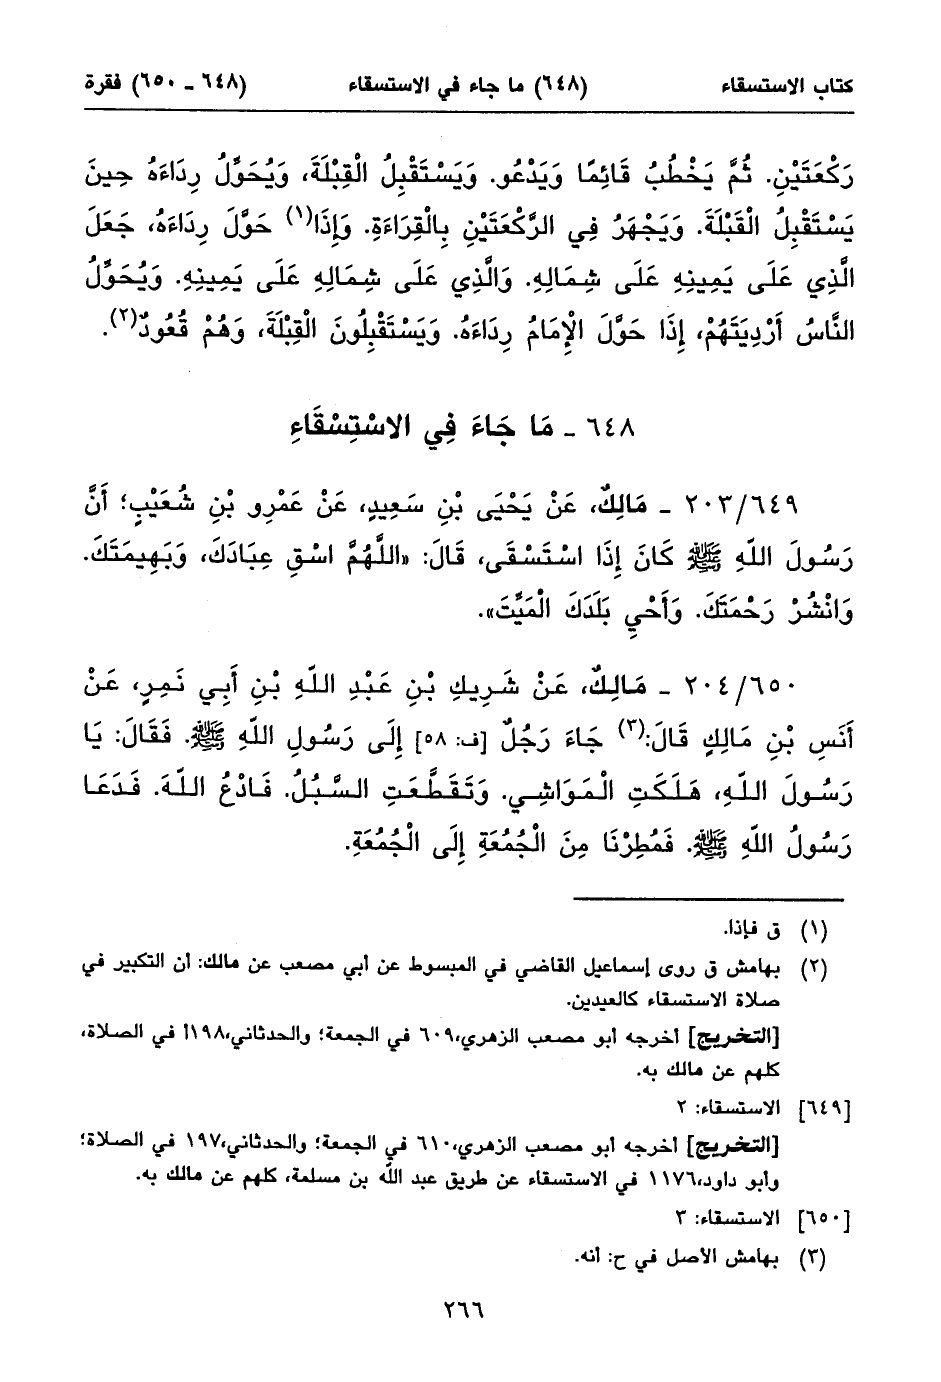 كتاب الاستسقاء (٦٤٨) ما جاء في الاستسقاء (٦٤٨ - ٦٥٠) فقرة
رَكْعَتَيْنِ. ثُمَّ يَخْطُبُ قَائِمًا وَيَدْعُو. وَيَسْتَقْبِلُ الْقِبْلَةَ، وَيُحَوِّلُ رِدَاءَهُ حِينَ
يَسْتَقْبِلُ الْقَبْلَةَ. وَيَجْهَرُ فِي الرَّكْعَتَيْنِ بِالْقِرَاءَةِ. وَإِذَا(١) حَوَّلَ رِدَاءَهُ، جَعَلَ
الَّذِي عَلَى يَمِينِهِ عَلَى شِمَالِهِ. وَالَّذِي عَلَى شِمَالِهِ عَلَى يَمِينِهِ. وَيُحَوِّلُ
النَّاسُ أَرْدِيَتَهُمْ، إِذَا حَوَّلَ الْإِمَامُ رِدَاءَهُ. وَيَسْتَقْبِلُونَ الْقِبْلَةَ، وَهُمْ قُعُودٌ(٢).
٦٤٨ - مَا جَاءَ فِي الاسْتِسْقَاءِ
٢٠٣/٦٤٩ - مَالِكٌ، عَنْ يَحْيَى بْنِ سَعِيدٍ، عَنْ عَمْرِو بْنِ شُعَيْبٍ؛ أَنَّ
رَسُولَ اللّهِ ﷺ كَانَ إِذَا اسْتَسْقَى، قَالَ: «اللَّهُمَّ اسْقِ عِبَادَكَ، وَبَهِيمَتَكَ.
وَانْشُرْ رَحْمَتَكَ. وَأَحْيِ بَلَدَكَ الْمَيِّتَ».
٢٠٤/٦٥٠ - مَالِكٌ، عَنْ شَرِيكِ بْنِ عَبْدِ اللّهِ بْنِ أَبِي نَمِرٍ، عَنْ
أَنَسِ بْنِ مَالِكٍ قَالَ:(٣) جَاءَ رَجُلٌ [ف: ٥٨] إِلَى رَسُولِ اللّهِ ﷺ. فَقَالَ: يَا
رَسُولَ اللّهِ، هَلَكَتِ الْمَوَاشِي. وَتَقَطَّعَتِ السُّبُلُ. فَادْعُ اللّهَ. فَدَعَا
رَسُولُ اللّهِ ﷺ. فَمُطِرْنَا مِنَ الْجُمُعَةِ إِلَى الْجُمُعَةِ.
(١) ق فإذا.
(٢) بهامش ق روى إسماعيل القاضي في المبسوط عن أبي مصعب عن مالك: أن التكبير في
صلاة الاستسقاء كالعيدين.
[التخريج] أخرجه أبو مصعب الزهري،٦٠٩ في الجمعة؛ والحدثاني،١٩٨أ في الصلاة،
كلهم عن مالك به.
[٦٤٩] الاستسقاء: ٢
[التخريج] أخرجه أبو مصعب الزهري،٦١٠ في الجمعة؛ والحدثاني،١٩٧ في الصلاة؛
وأبو داود،١١٧٦ في الاستسقاء عن طريق عبد الله بن مسلمة، كلهم عن مالك به.
[٦٥٠] الاستسقاء: ٣
(٣) بهامش الأصل في ح: أنه.
٢٦٦